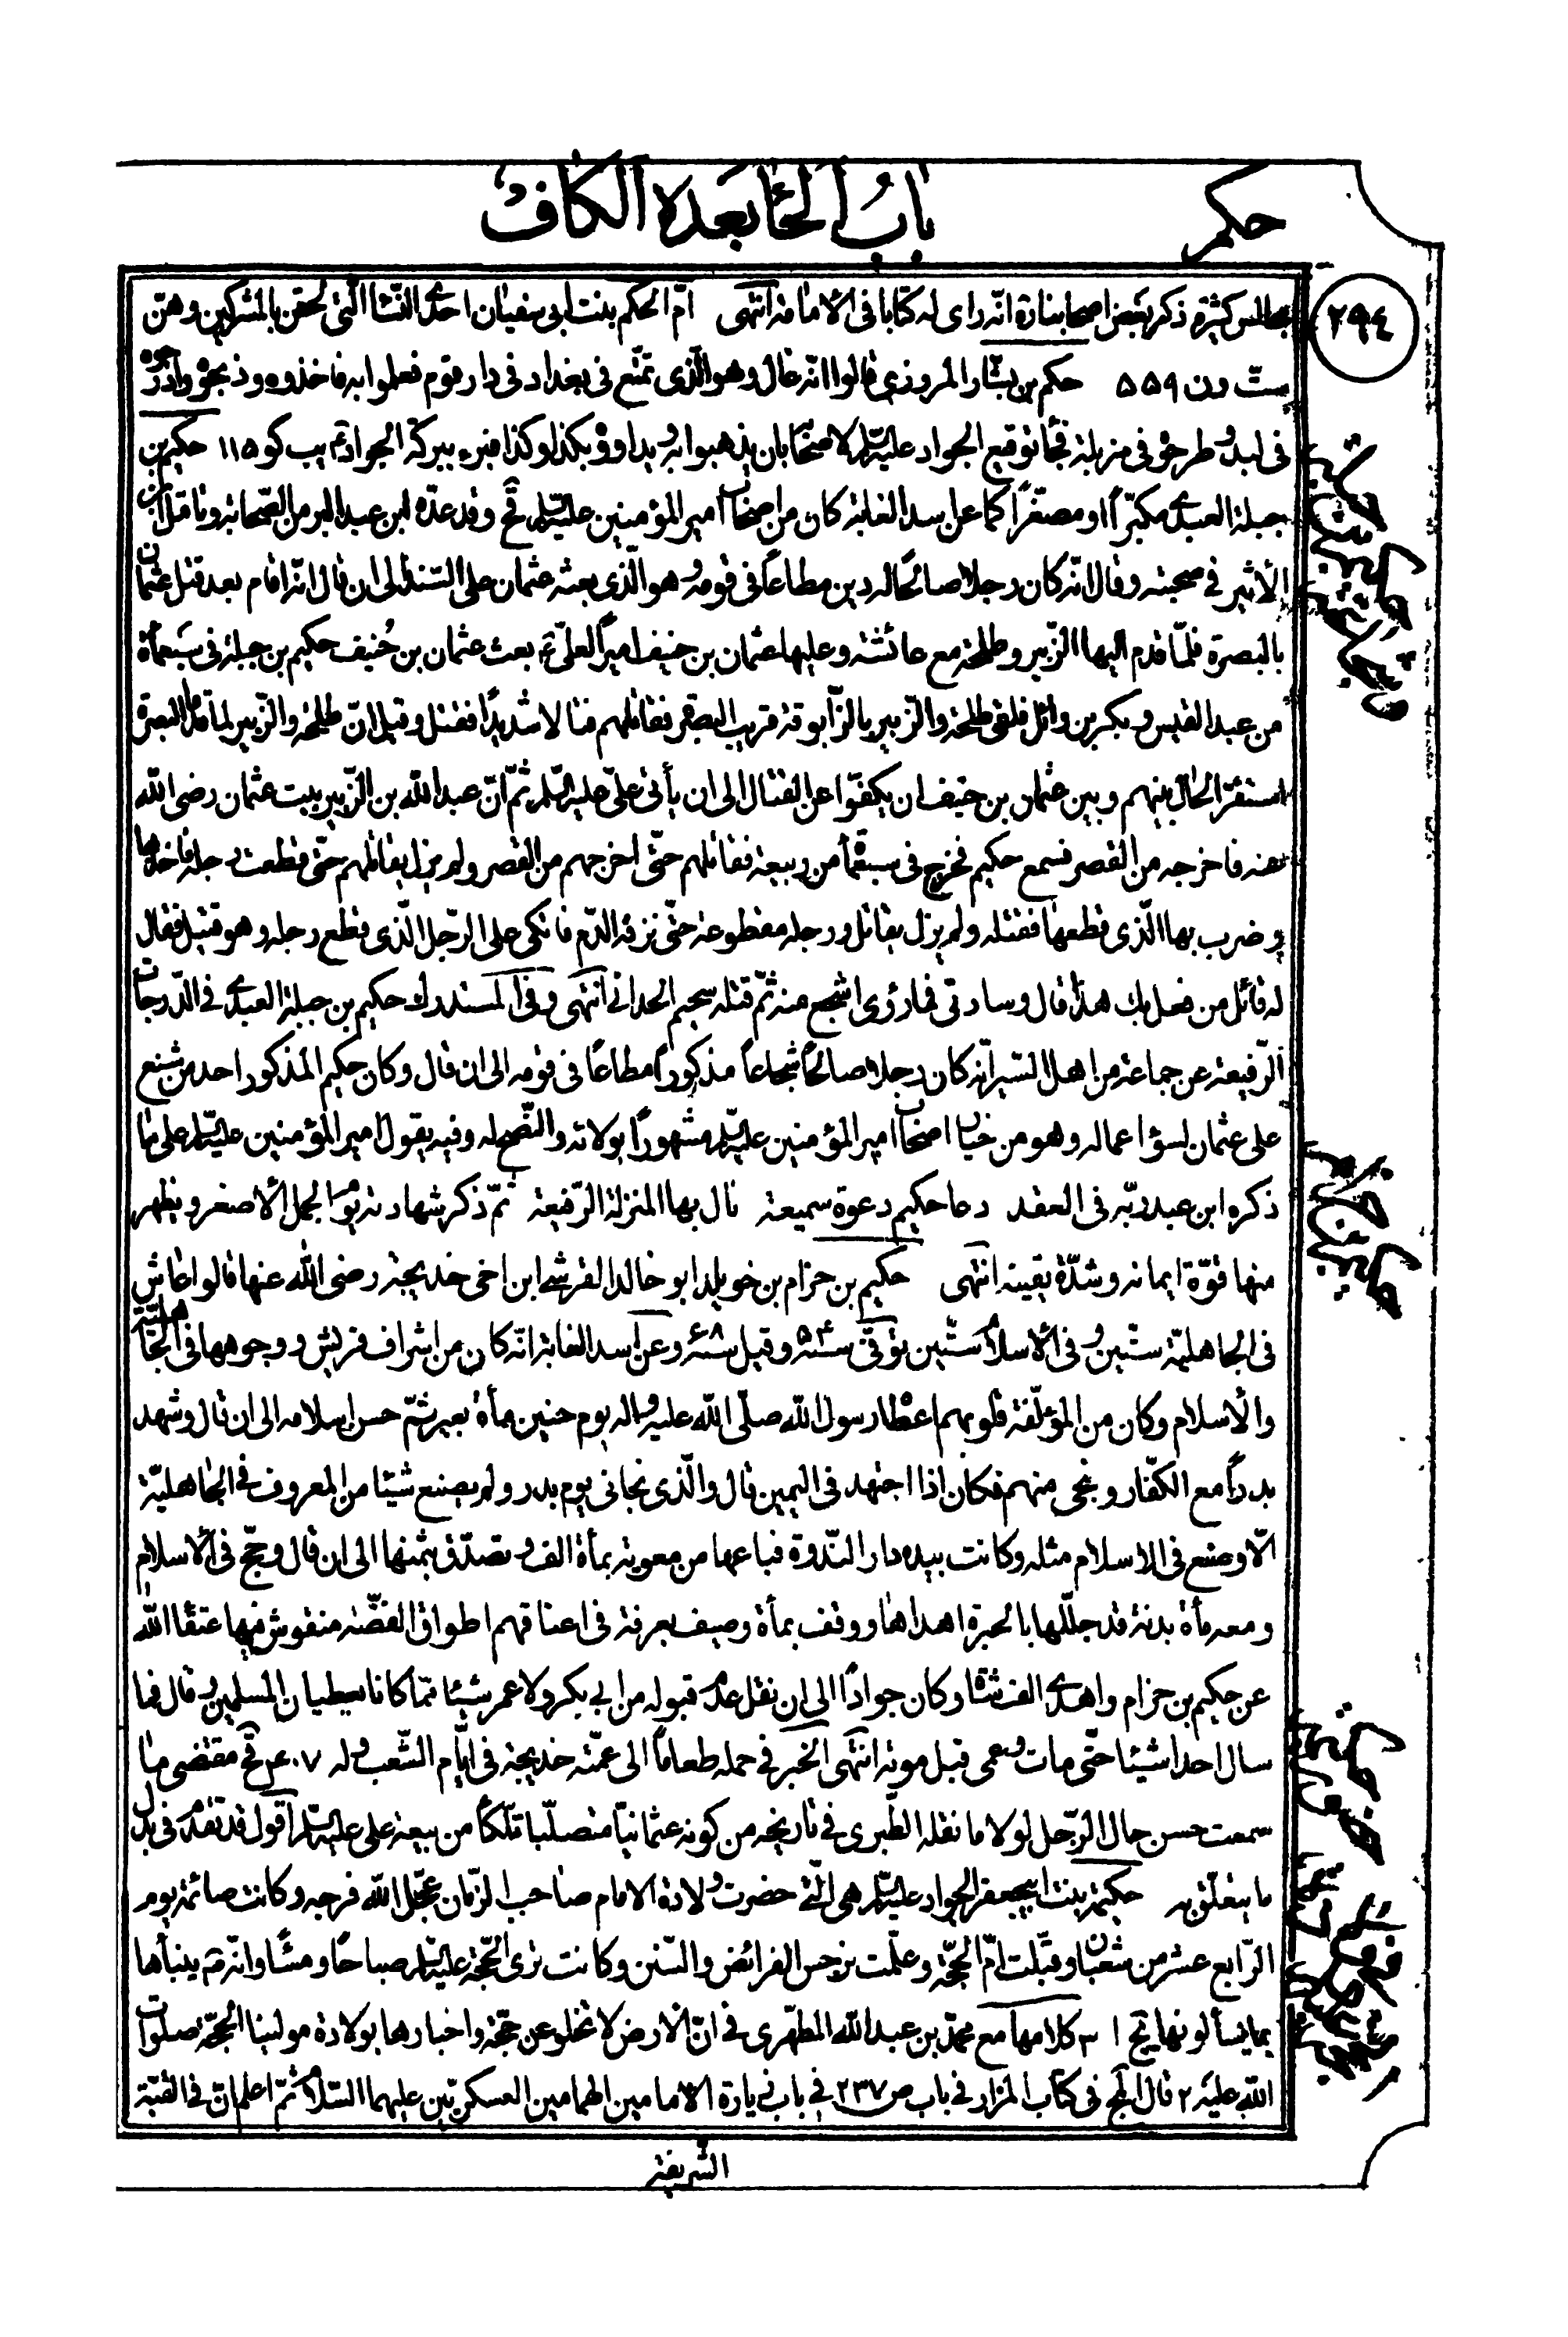 حكم
باب الحاء بعده الكاف
٢٩٤
مجالس كثيرة ذكر بعض اصحابنا ره انّه راى له كتابا فى الأمامة انتهى امّ الحكم بنت ابى سفيان احدى النّساء الّتى لحقن بالمشركين وهنّ
ستّ ون ٥٥٩ حكم بن بشّار المروزى قالوا انّه غال وهو الّذى تمتّع فى بغداد فى دار قوم فعلموا به فاخذوه وذبحوه وادرجوه
فى لبد وطرحوه فى مزبلة فجاء توقيع الجواد عليه السّلم لاصحابه بان يذهبوا به ويداووه بكذا وكذا فبرء ببركة الجواد ع يب كو ١١٥ حكيم بن
جبلة العبدى مكبّراً او مصغّراً كما عن اسد الغابة كان من اصحاب امير المؤمنين عليه السّلم قح وقد عدّه ابن عبد البر من الصّحابة وتامّل ابن
الأثير فى صحبته وقال انّه كان رجلا صالحًا له دين مطاعًا فى قومه وهو الّذى بعثه عثمان على السّند الى ان قال انّه اقام بعد قتل عثمان
بالبصرة فلمّا قدم اليها الزّبير وطلحة مع عائشة وعليها عثمان بن حنيف اميرًا لعلىّ ع بعث عثمان بن حُنيف حكيم بن جبلة فى سبعمأة
من عبد القيس وبكر بن وائل فلقى طلحة والزّبير بالزّابوقة قريب البصرة فقاتلهم قتالا شديدًا فقتل وقيل انّ طلحة والزّبير لما قدما البصرة
استقرّ الحال بينهم وبين عثمان بن حنيف ان يكفّوا عن القتال الى ان يأتى علىّ عليه السّلم ثمّ انّ عبد الله بن الزّبير بيت عثمان رضى الله
عنه فاخرجه من القصر فسمع حكيم فخرج فى سبعمأة من ربيعة فقاتلهم حتّى اخرجهم من القصر ولم يزل يقاتلهم حتّى قطعت رجله فاخذها
وضرب بها الّذى قطعها فقتله ولم يزل يقاتل ورجله مقطوعة حتّى نزفه الدّم فاتكى على الرّجل الّذى قطع رجله وهو قتيل فقال
له قائل من فعل بك هذا قال وسادتى فما رؤى اشجع منه ثمّ قتله سحيم الحدانى انتهى وفى المستدرك حكيم بن جبلة العبدى فى الدّرجات
الرّفيعة عن جماعة من اهل السّير انّه كان رجلا صالحًا شجاعًا مذكورًا مطاعًا فى قومه الى ان قال وكان حكيم المذكور احد من شنع
على عثمان لسؤ اعماله وهو من خيار اصحاب امير المؤمنين عليه السّلم مشهورًا بولائه والنّصح له وفيه يقول امير المؤمنين عليه السّلم على ما
ذكره ابن عبد ربّه فى العقد دعا حكيم دعوة سميعة نال بها المنزلة الرّفيعة ثمّ ذكر شهادته يوم الجمل الأصغر ويظهر
منها قوّة ايمانه وشدّة يقينه انتهى حكيم بن حزام بن خويلد ابو خالد القرشى ابن اخى خديجة رضى الله عنها قالوا عاش
فى الجاهليّة ستّين وفى الأسلام ستّين توفّى سنة ٥٤ وقيل سنة ٦٨ وعن اسد الغابة انّه كان من اشراف قريش ووجوهها فى الجاهليّة
والأسلام وكان من المؤلّفة قلوبهم اعطاه رسول الله صلّى الله عليه واله يوم حنين مأة بعير ثمّ حسن اسلامه الى ان قال وشهد
بدراً مع الكفّار ونجى منهم فكان اذا اجتهد فى اليمين قال والّذى نجانى يوم بدر ولم يصنع شيئا من المعروف فى الجاهليّة
الّا وصنع فى الاسلام مثله وكانت بيده دار النّدوة فباعها من معوية بمأة الف وتصدّق بثمنها الى ان قال وحجّ فى الأسلام
ومعه مأة بدنة قد جلّلها بالحبرة اهداها ووقف بمأة وصيف بعرفة فى اعناقهم اطواق الفضّة منقوش فيها عتقاء الله
عن حكيم بن حزام واهدى الف شاة وكان جوادًا الى ان نقل عدم قبوله من ابى بكر ولا عمر شيئا ممّا كانا يعطيان المسلمين وقال فما
سال احدا شيئا حتّى مات وعمى قبل موته انتهى الخبر فى حمله طعامًا الى عمّته خديجة فى ايّام الشّعب وله قح مقتضى ما
سمعت حسن حال الرّجل لولا ما نقله الطّبرى فى تاريخه من كونه عثمانيّا متصلّبا تلكّأ من بيعة على عليه السّلم اقول قد تقدّم فى بدل
ما يتعلّق به حكيمة بنت ابيجعفر الجواد عليه السّلم هى الّتى حضرت ولادة الامام صاحب الزّمان عجّل الله فرجه وكانت صائمة يوم
الرّابع عشر من شعبان وقبّلت امّ الحجّة وعلّمت نرجس الفرائض والسّنن وكانت ترى الحجّة عليه السّلم صباحًا ومساءً وانّه ع ينبأها
بما يسألونها يج ا ٣ كلامها مع محمّد بن عبد الله المطهّرى فى انّ الارض لا تخلو عن حجّة واخبارها بولادة مولينا الحجّة صلوات
الله عليه ٢ قال المج فى كتاب المزار فى باب ص ٢٣٧ فى باب زيارة الامامين الهمامين العسكريّين عليهما السّلام ثمّ اعلم انّ فى القبّة
الشّريفة